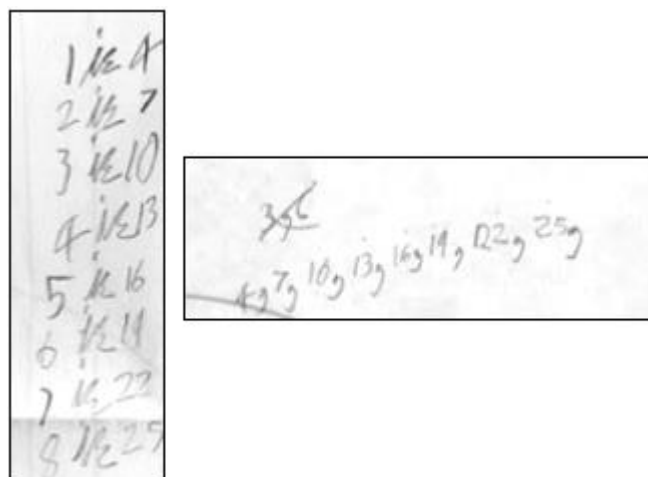 1 ise 4
2 ise 7
3 ise 10
4 ise 13
5 ise 16
6 ise 19
7 ise 22
8 ise 25
3, 6
4, 7, 10, 13, 16, 19, 22, 25,